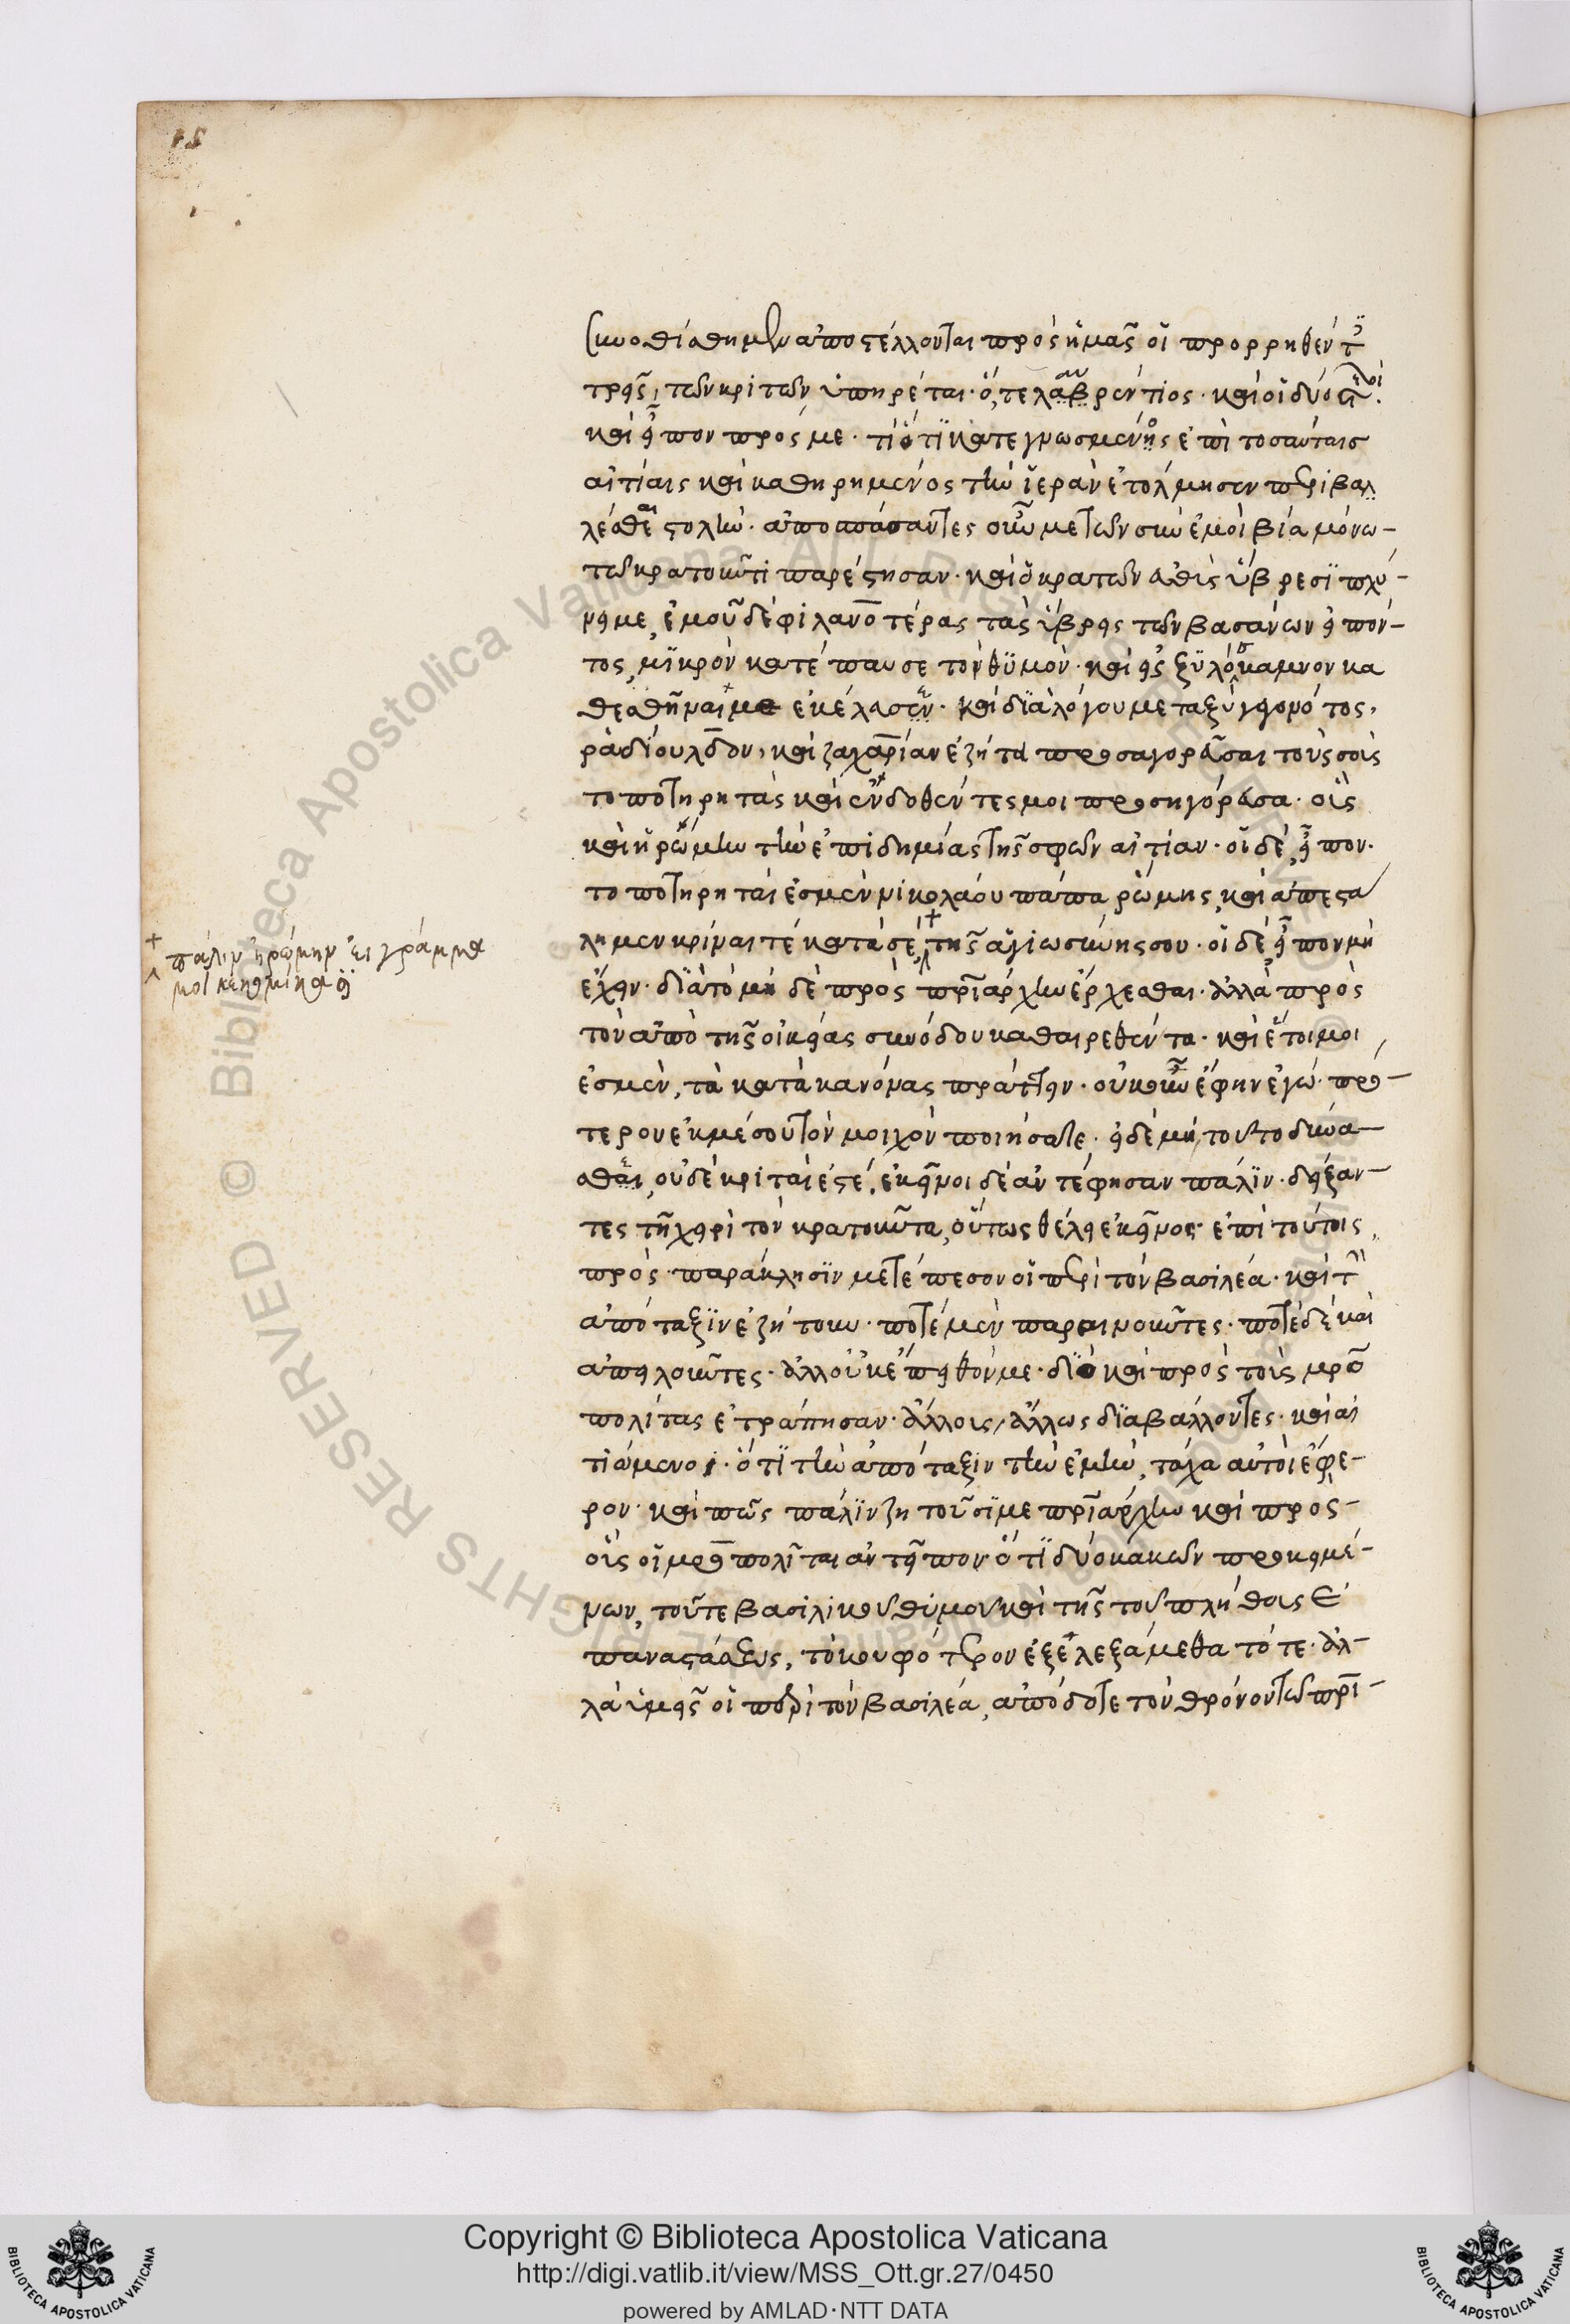 σκυνοθίσθημεν ἀποστέλλονται πρὸς ἡμᾶς οἱ προρρηθέντ
τρεῖς, τῶν κριτῶν ὑπηρέται· ὅ, τε λαβρέντιος· καὶ οἱ δύο
καὶ εἶπον πρός με· τί ὅτι κατεγνωσμένος ἐπὶ τοσαύταις
αἰτίαις καὶ καθηρημένος τὴν ἱερὰν ἐτόλμησεν περιβαλ
λέσθαι στολήν· ἀποσπάσαντες οὖν με τῶν σὺν ἐμοὶ βία μόνω
τῶ κρατοῦντι παρέστησαν· καὶ ὁ κρατῶν εὐθὺς ὕβρεσι πλύ-
νει με, ἐμοῦ δὲ φιλανοτέρας τὰς ὕβρεις τῶν βασάνων εἰπόν-
τος, μικρὸν κατέπαυσε τὸν θυμόν· καὶ εἰς ξυλόκαμνον κα
θεσθῆναι με ἐκέλευσεν· καὶ διαλόγου μεταξὺ γεγονότος,
ραδίουλδον, καὶ ζαχαρίαν ἐζήτει προσαγορεῦσαι τοὺς
τοποτηρητὰς καὶ ἐνδοθέντες μοι προσηγόρευσα· οὓς
καὶ ἠρώμην τὴν ἐπιδημίας τῆς σφῶν αἰτίαν· οἱ δὲ, εἶπον·
τοποτηρηταί ἐσμεν νικολάου πάπα ῥώμης, καὶ ἀπεστά
λημεν κρῖναι τὲ κατὰ σὲ, τῆς ἁγιωσύνης σου· οἱ δὲ, εἶπον μὴ
ἔχειν· διὰ τὸ μὴ δὲ πρὸς πριάρχην ἔρχεσθαι· ἀλλὰ πρὸς
τὸν ἀπὸ τῆς οἰκείας συνόδου καθαιρεθέντα· καὶ ἕτοιμοι
ἐσμὲν, τὰ κατὰ κανόνας πράττειν· οὐκοῦν ἔφην ἐγώ· πρό-
τερον ἐκ μέσου τὸν μοιχὸν ποιήσατε· εἰ δὲ μὴ, τοῦτο δύνα-
σθαι, οὐδὲ κριταί ἐστέ. ἐκεῖνοι δὲ ἀντέφησαν πάλιν· δείξαν-
τες τῆ χειρὶ τὸν κρατοῦντα, οὕτως θέλει ἐκεῖνος· ἐπὶ τούτοις
πρὸς παράκλησιν μετέπεσον οἱ περὶ τὸν βασιλέα· καὶ τ
ἀπόταξιν ἐζήτουν· ποτὲ μὲν παραινοῦντες· ποτὲ δὲ καὶ
ἀπειλοῦντες· ἀλλ᾽ οὐκ ἔπειθόν με· διὸ καὶ πρὸς τοὺς μρο
πολίτας ἐτράπησαν· ἄλλοις, ἄλλως διαβάλλοντες· καὶ αἰ
τιώμενοι· ὅτι τὴν ἀπόταξιν τὴν ἐμὴν, τάχα αὐτοὶ ἔφε-
ρον· καὶ πῶς πάλιν ζητοῦσί με πριάρχην καὶ πρὸς
οὓς οἱ μροπολῖται ἀντεῖπον· ὅτι δύο κακῶν προκειμέ-
νων, τοῦτε βασιλικοῦ θυμοῦ καὶ τῆς τοῦ πλήθους ἐ
παναστάσεως, τὸ κουφότερον ἐξελεξάμεθα τότε· ἀλ-
λὰ ὑμεῖς οἱ περὶ τὸν βασιλέα, ἀπόδοτε τὸν θρόνον τῶ πρι-
πάλιν ἠρώμην εἰ γράμμα
μοι κεκομίκασι
Copyright © Biblioteca Apostolica Vaticana
http://digi.vatlib.it/view/MSS_Ott.gr.27/0450
powered by AMLAD·NTT DATA
Biblioteca Apostolica Vaticana
BIBLIOTECA APOSTOLICA VATICANA
BIBLIOTECA APOSTOLICA VATICANA